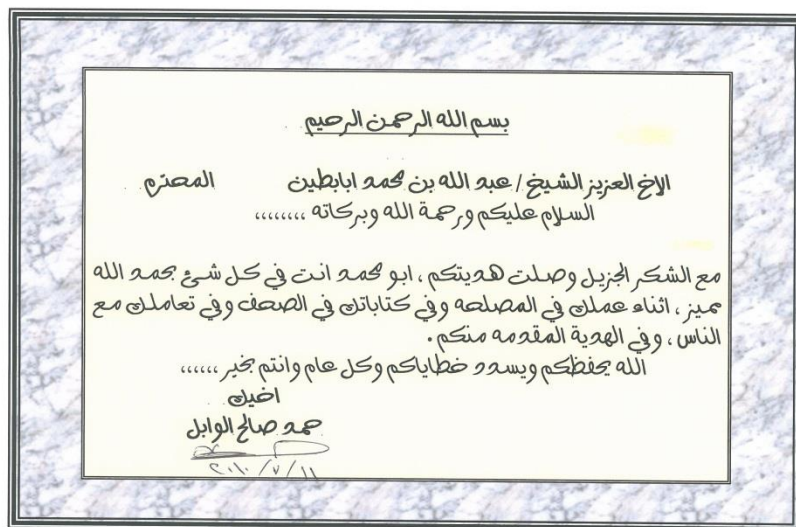 بسم الله الرحمن الرحيم
الاخ العزيز الشيخ / عبد الله بن محمد ابابطين المحترم
السلام عليكم ورحمة الله وبركاته ,,,,,,,,
مع الشكر الجزيل وصلت هديتكم ، ابو محمد انت في كل شئ بحمد الله
مميز ، اثناء عملك في المصلحه وفي كتاباتك في الصحف وفي تعاملك مع
الناس ، وفي الهدية المقدمه منكم .
الله يحفظكم ويسدد خطاياكم وكل عام وانتم بخير ,,,,,,
اخيك
حمد صالح الوابل
٢٠١٠/٧/١١